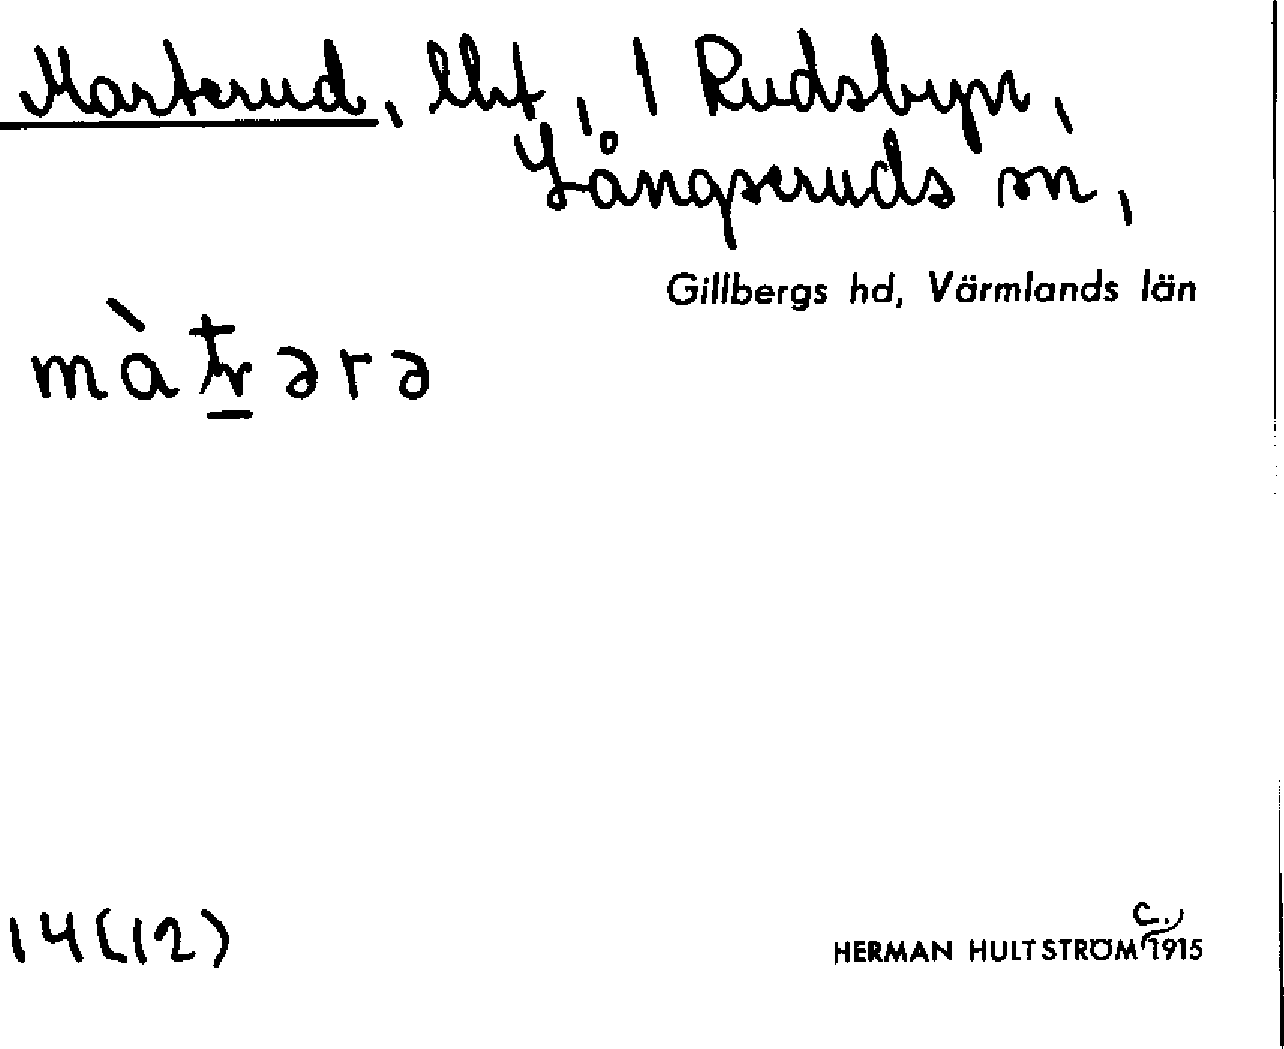 Marterud, lht, 1 Rudsbyn,
Långseruds sn,
Gillbergs hd, Värmlands län
14(12)
HERMAN HULTSTRÖM c. 1915